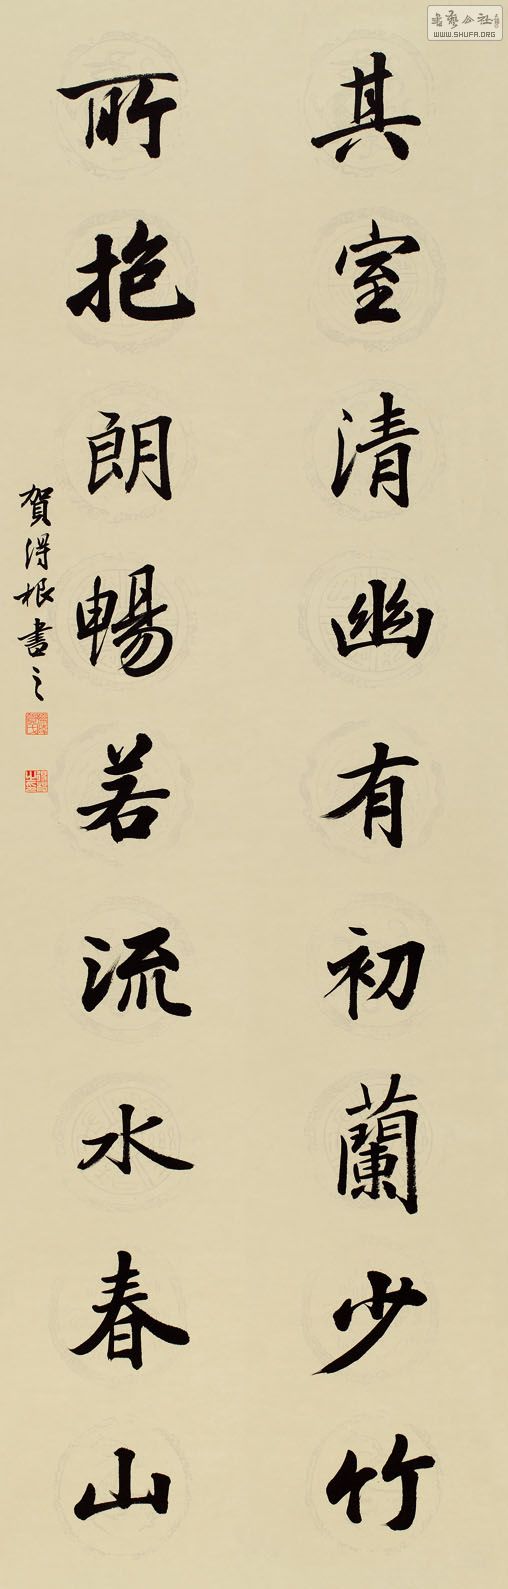 其室清幽有初蘭少竹
所抱朗暢若流水春山
賀得根書之
書藝公社
WWW.SHUFA.ORG